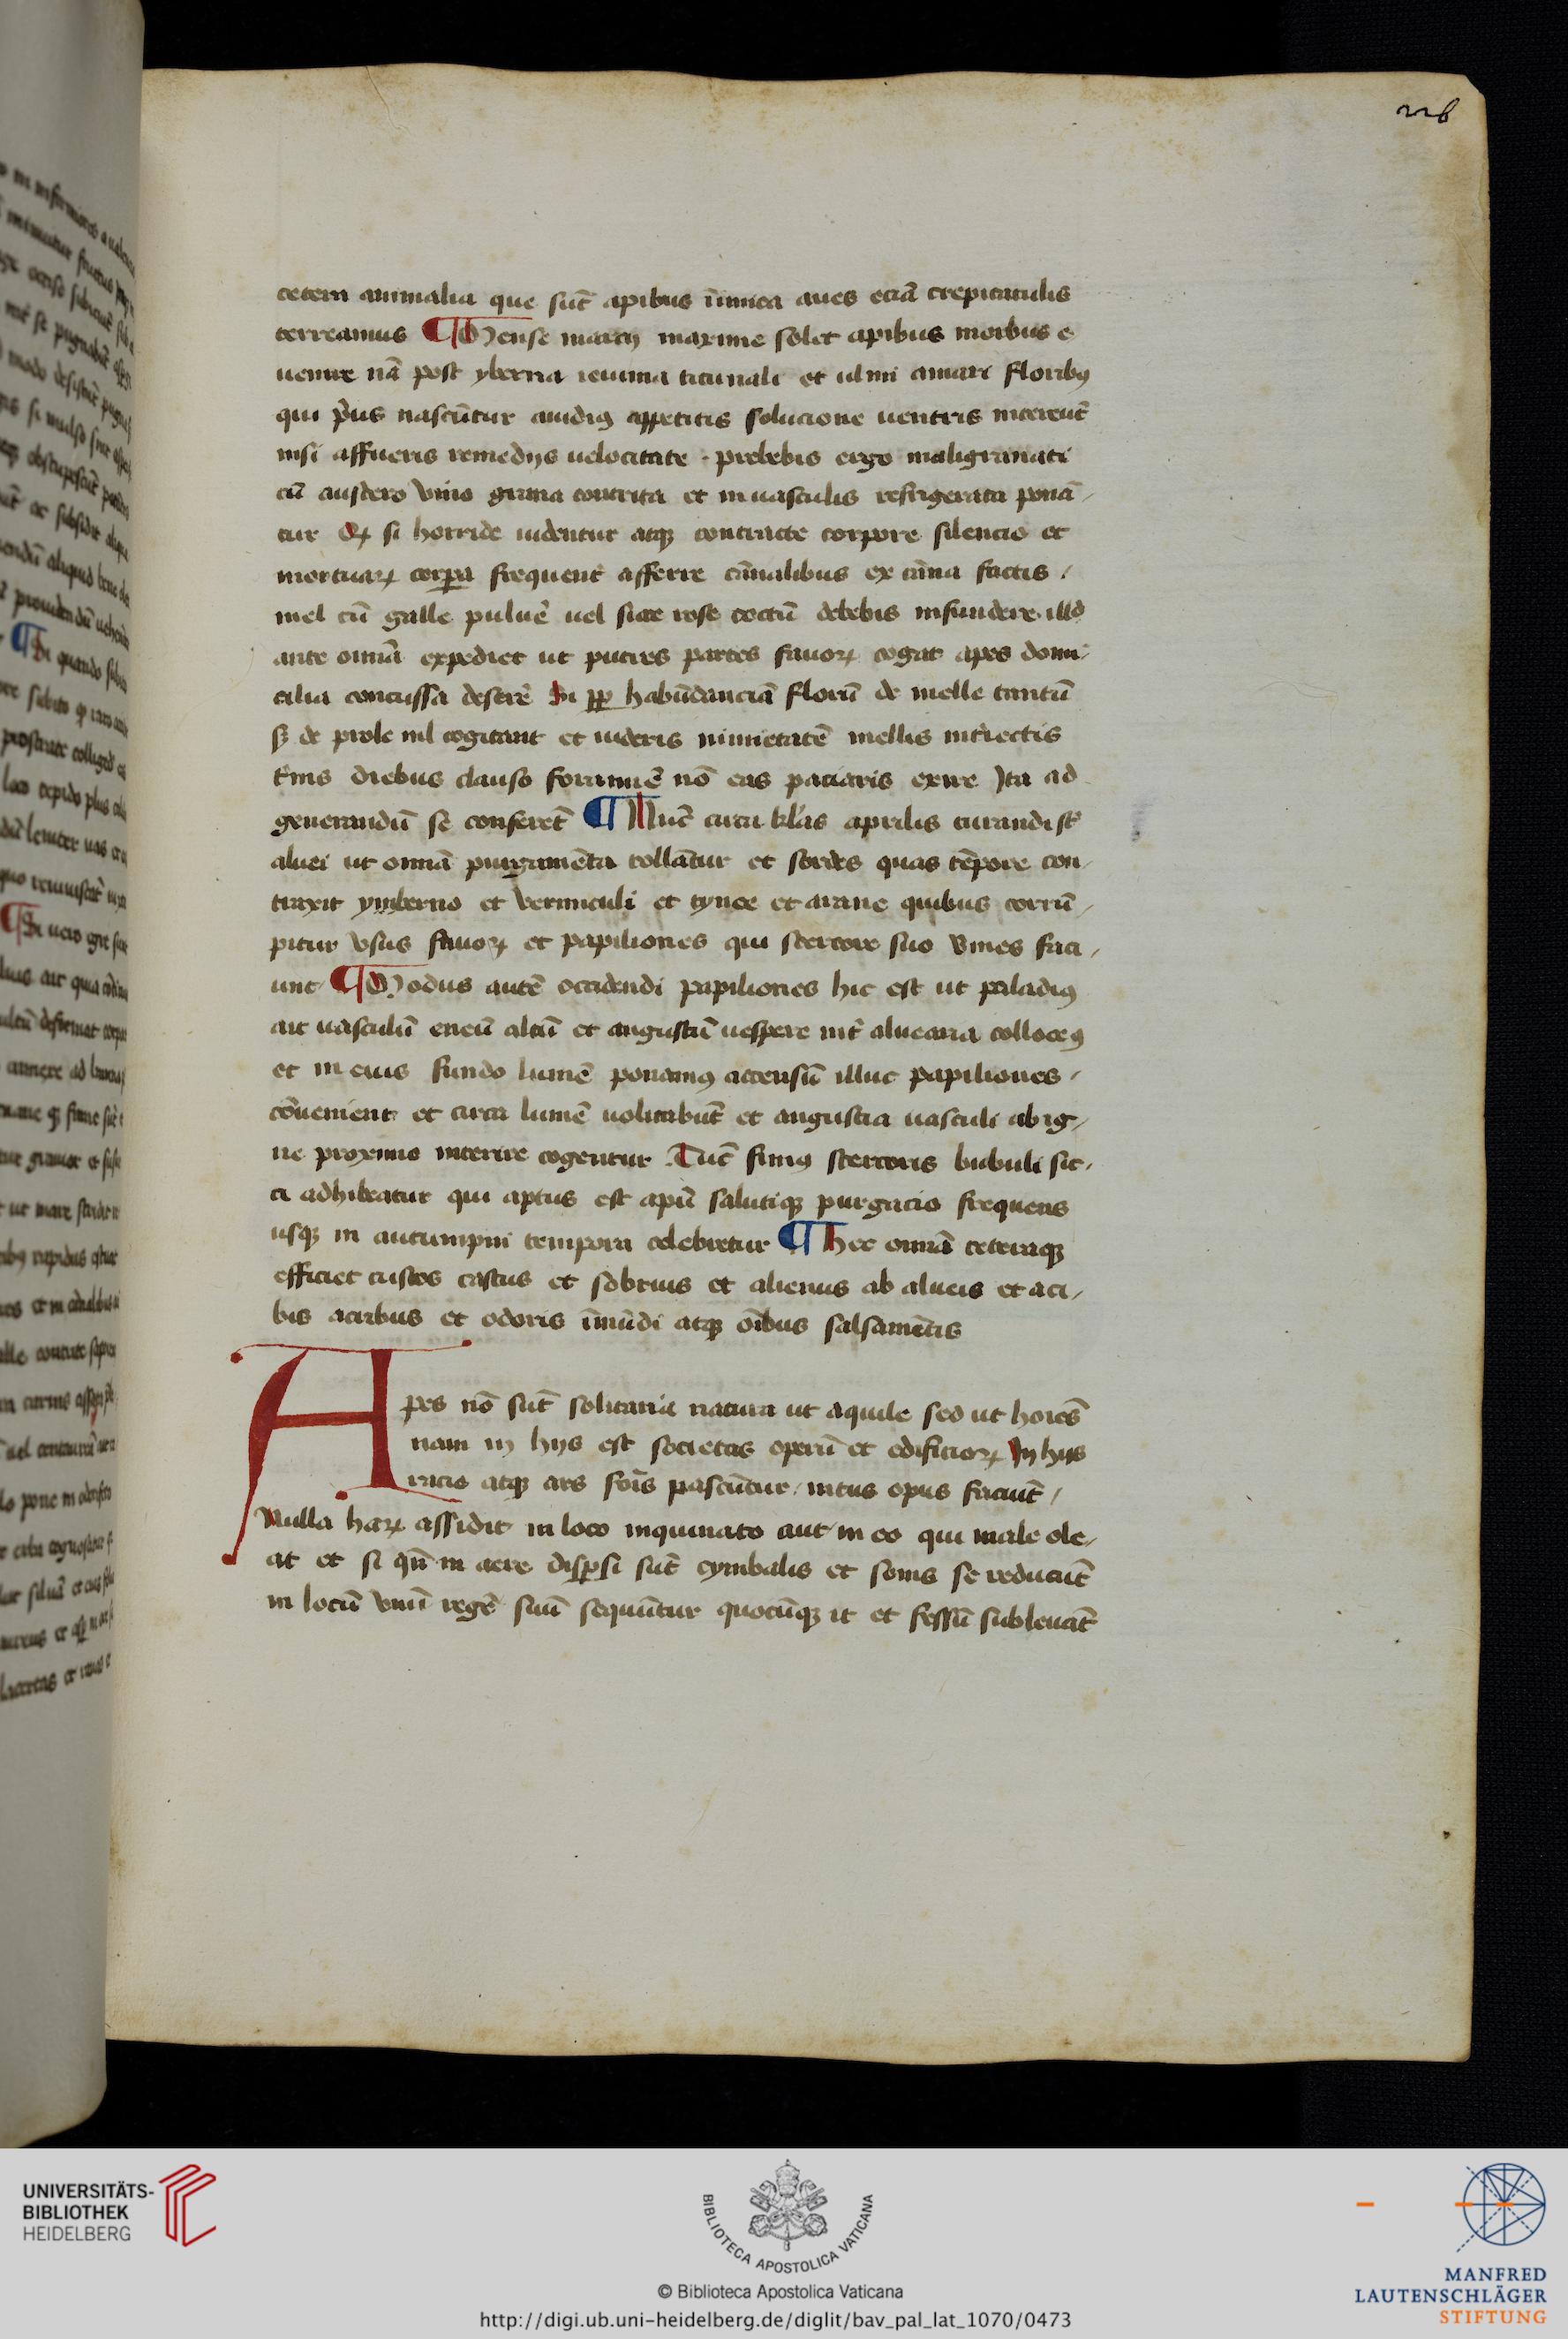 226
cetera animalia que sūt apibus īimica aues eciā crepitaculis
terreamus ¶ Mense marcij maxime solet apibus morbus e
uenire nā post yberna ieiunia titimali et ulmi amari floribꝫ
qui p̄us nascūtur auidiꝰ appetitis solucione uentris intereūt
nisi affueris remedijs uelocitate · prebebis ergo maligranati
cū austero vino grana contrita et in uasculis refrigerata ponā/
tur Qꝫ si horride uidentur atqꝫ contracte corpore silencio et
mortuaꝝ corꝑa frequent̄ afferre cānalibus ex cāna factis /
mel cū galle puluē uel sicce rose coctū debebis infundere illd̄
ante omīa expediet ut putres partes fauoꝝ cogat apes domi/
cilia concussa deserē Si ꝓpꝑ habūdanciā florū de melle tantū
sꝫ de prole nil cogitant et uideris nimietatē mellis int̄iectis
t̄nis diebus clauso foraminē nō eas paciaris exire Ita ad
generandū se conferēt ¶ Nūc circa kl̄as aprilis curandi sūt
aluei ut omīa purgamēta tollātur et sordes quas tēpore con/
traxit ymberno et vermiculi et tynee et aranee quibus corrū/
pitur vsus fauoꝝ et papiliones qui stercore suo v̄mes faci/
unt ¶ Modus autē occidendi papiliones hic est ut paladiꝰ
ait uasculū eneū altū et angustū uespere int̄ aluearia colloceꝰ
et in eius fundo lumē ponamꝰ accensū illuc papiliones /
cōuenient et circa lumē uolitabūt et angustia uasculi ab ig/
ne proximo interire cogentur Tūc fimꝰ stercoris bubuli sic/
ci adhibeatur qui aptus est apiū salutiqꝫ purgacio frequens
usqꝫ in autumpni tempora celebretur ¶ Hec omīa ceteraqꝫ
efficiet custos castus et sobrius et alienus ab alueis et aci/
bis acribus et odoris īmūdi atqꝫ oībus salsamētis
Apes nō sūt solitaria natura ut aquile sed ut hoīes
nam in hijs est societas operū et edificioꝝ In hijs
racio atqꝫ ars foīs pascūtur / intus opus faciūt /
Nulla haꝝ assidit in loco inquinato aut in eo qui male ole/
at et si qn̄ in aere disꝑsi sūt cymbalis et sonis se reducūt
in locū vnū regē suū sequūtur quocūqꝫ it et fessū subleuāt
UNIVERSITÄTS-
BIBLIOTHEK
HEIDELBERG
BIBLIOTECA APOSTOLICA VATICANA
© Biblioteca Apostolica Vaticana
http://digi.ub.uni-heidelberg.de/diglit/bav_pal_lat_1070/0473
MANFRED
LAUTENSCHLÄGER
STIFTUNG